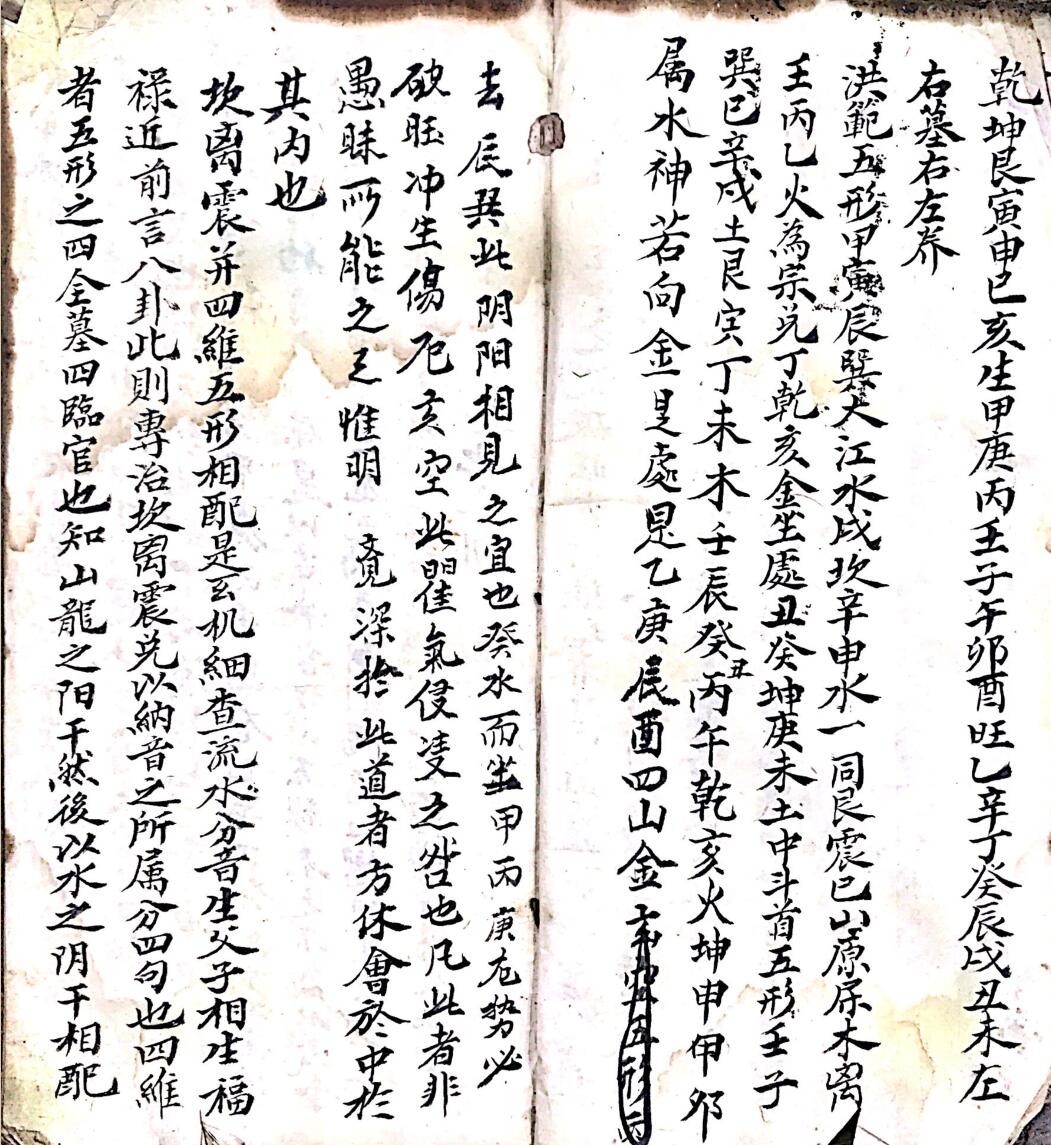 乾坤艮寅申巳亥生甲庚丙壬子午卯酉旺乙辛丁癸辰戌丑未左
右墓右左养
洪範五形甲寅辰巽大江水戌坎辛申水一同艮震巳山原属木离
壬丙乙火為宗兑丁乾亥金生處丑癸坤庚未土中斗首五形壬子
巽巳辛戌土艮寅丁未木壬辰癸丑丙午乾亥火坤申甲卯
属水神若向金是處是乙庚辰酉四山金
去辰巽此阴阳相見之宜也癸水而坐甲丙庚左势必
破旺冲生傷左亥空此曜氣侵凌之咎也凡此者非
愚昧所能之已惟明竟深於此道者方休會於中於
其内也
坎离震并四維五形相配是玄机細查流水分音生父子相生福
禄近前言八卦此則專治坎离震兑以納音之所属分四句也四維
者五形之四全墓四臨官也知山龍之阳干然後以水之阴干相配